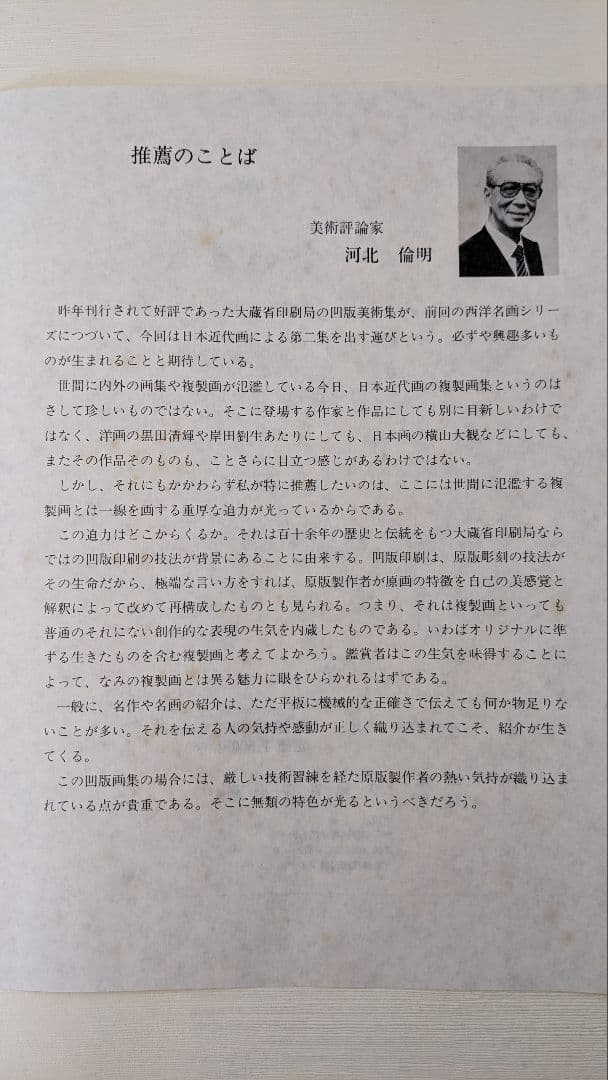 推薦のことば
美術評論家
河北 倫明
昨年刊行されて好評であった大蔵省印刷局の凹版美術集が、前回の西洋名画シリー
ズにつづいて、今回は日本近代画による第二集を出す運びという。必ずや興趣多いも
のが生まれることと期待している。
世間に内外の画集や複製画が氾濫している今日、日本近代画の複製画集というのは
さして珍しいものではない。そこに登場する作家と作品にしても別に目新しいわけで
はなく、洋画の黒田清輝や岸田劉生あたりにしても、日本画の横山大観などにしても、
またその作品そのものも、ことさらに目立つ感じがあるわけではない。
しかし、それにもかかわらず私が特に推薦したいのは、ここには世間に氾濫する複
製画とは一線を画する重厚な迫力が光っているからである。
この迫力はどこからくるか。それは百十余年の歴史と伝統をもつ大蔵省印刷局なら
ではの凹版印刷の技法が背景にあることに由来する。凹版印刷は、原版彫刻の技法が
その生命だから、極端な言い方をすれば、原版製作者が原画の特徴を自己の美感覚と
解釈によって改めて再構成したものとも見られる。つまり、それは複製画といっても
普通のそれにない創作的な表現の生気を内蔵したものである。いわばオリジナルに準
ずる生きたものを含む複製画と考えてよかろう。鑑賞者はこの生気を味得することに
よって、なみの複製画とは異る魅力に眼をひらかれるはずである。
一般に、名作や名画の紹介は、ただ平板に機械的な正確さで伝えても何か物足りな
いことが多い。それを伝える人の気持や感動が正しく織り込まれてこそ、紹介が生き
てくる。
この凹版画集の場合には、厳しい技術習練を経た原版製作者の熱い気持が織り込ま
れている点が貴重である。そこに無類の特色が光るというべきだろう。